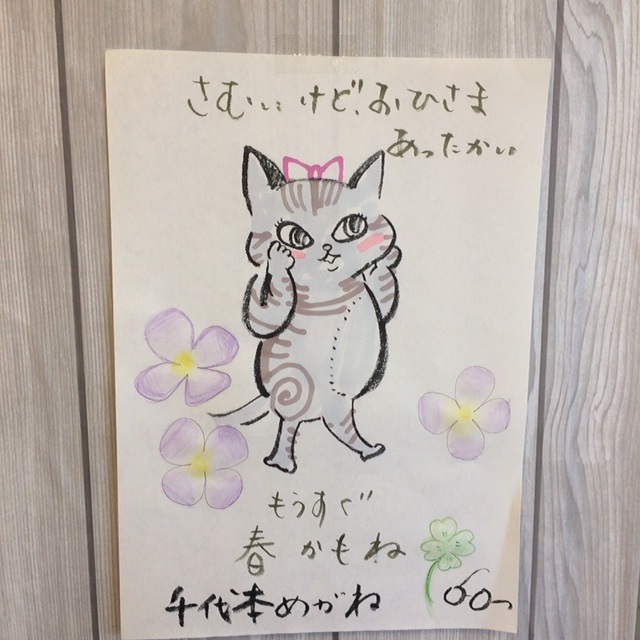 さむいけど、おひさま
あったかい
もうすぐ
春かもね
千代本めがね